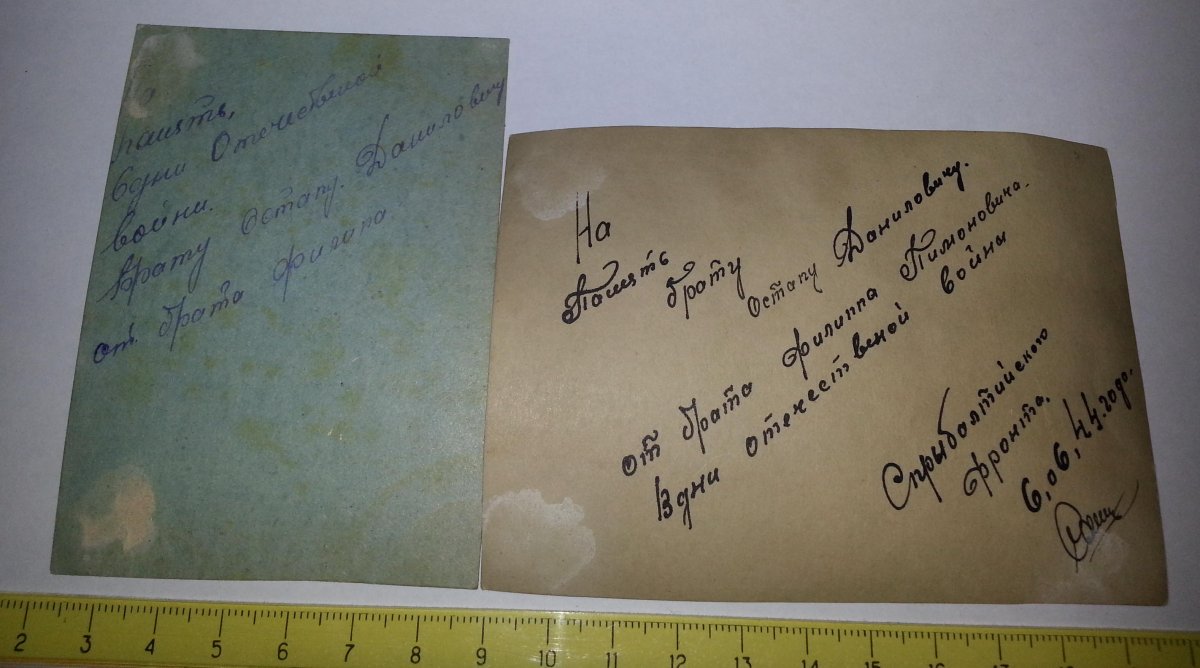 память,
вдни Отечественой
войни.
Брату Остапу. Даниловичу
от. брата Филипа
На
Память брату Остапу Даниловичу.
от брата Филиппа Пимоновича.
Вдни отечественой войны
Сприбалтийского
фронта.
6,06,44.года.
2 3 4 5 6 7 8 9 10 11 12 13